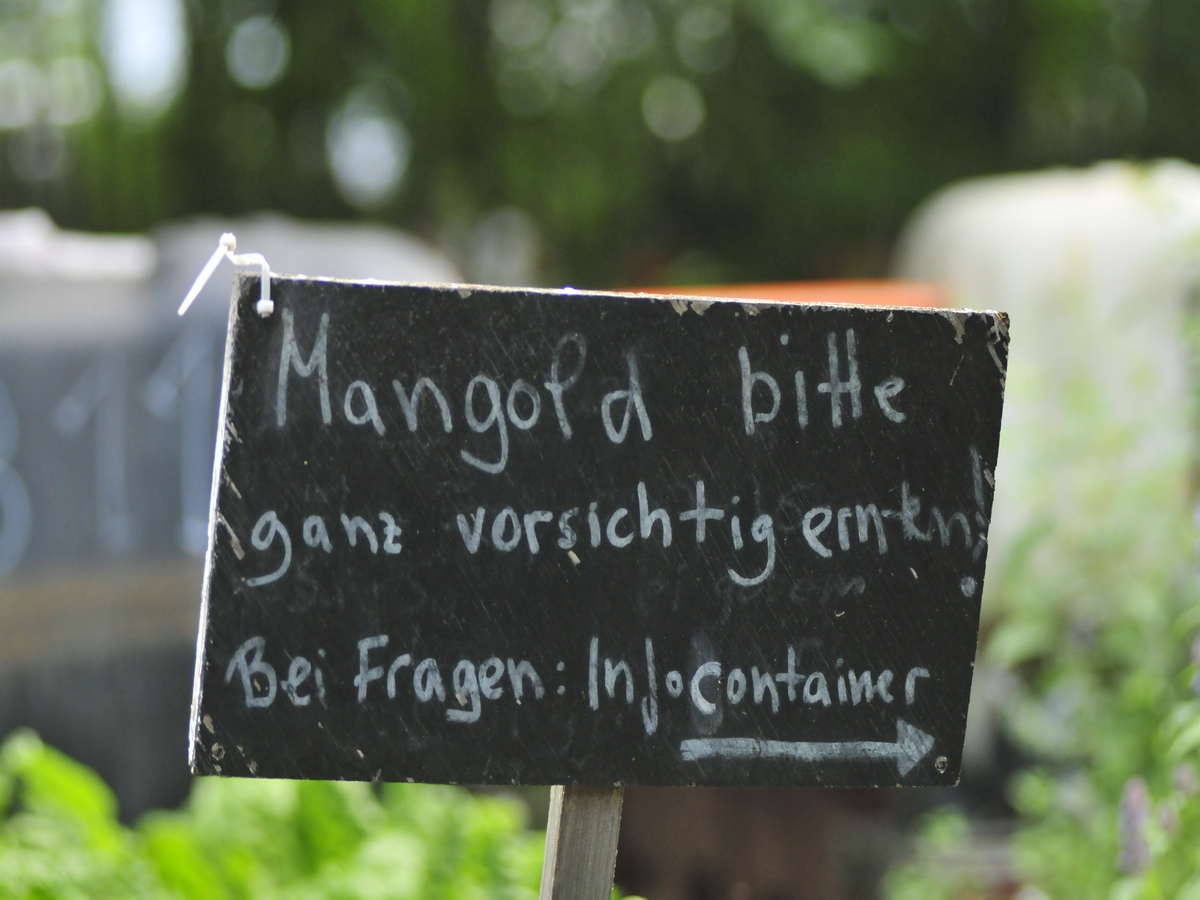 Mangold bitte
ganz vorsichtig ernten!
Bei Fragen: Infocontainer